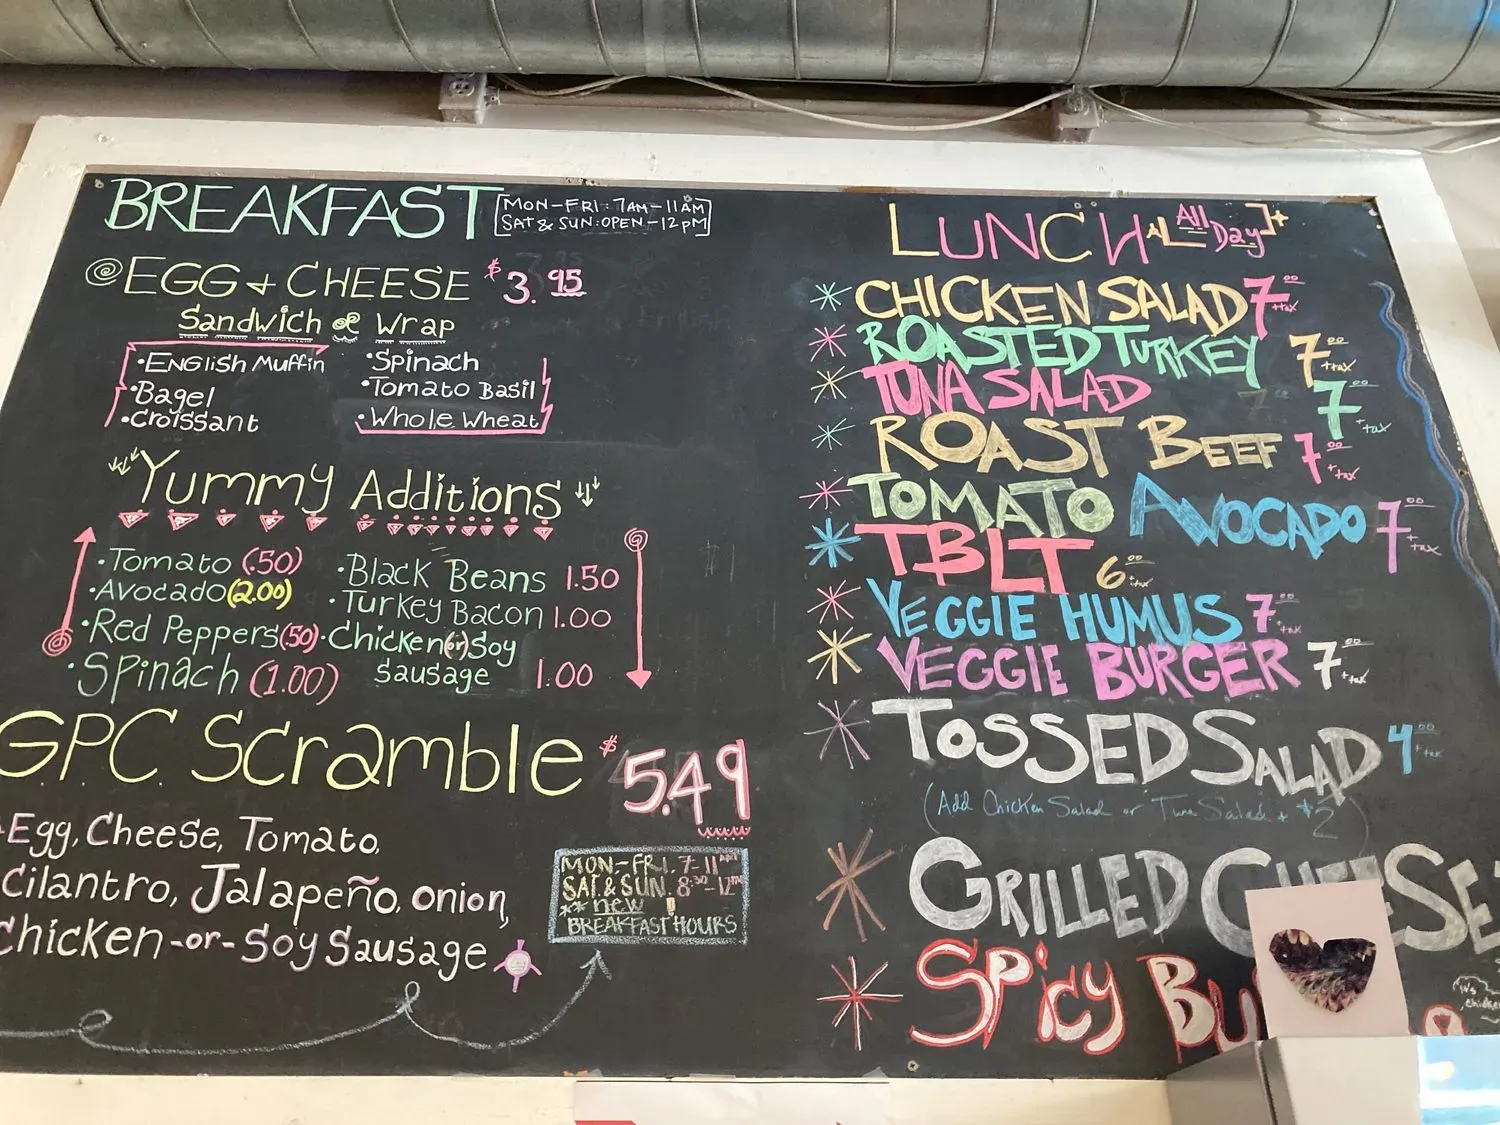 BREAKFAST [MON-FRI: 7AM-11AM
SAT & SUN: OPEN-12PM]
EGG + CHEESE $3.95
Sandwich or Wrap
• ENGlish Muffin
• Bagel
• Croissant
• Spinach
• Tomato Basil
• Whole Wheat
Yummy Additions
• Tomato (.50)
• Avocado (2.00)
• Red Peppers (50)
• Spinach (1.00)
• Black Beans 1.50
• Turkey Bacon 1.00
• Chicken (or) Soy
Sausage 1.00
G.P.C. Scramble $5.49
Egg, Cheese, Tomato,
Cilantro, Jalapeño, onion,
Chicken -or- Soy Sausage
MON-FRI. 7-11AM
SAT. & SUN. 8:30-12PM
** new !
BREAKFAST HOURS
LUNCH All Day
* CHICKEN SALAD 7.00 +tax
* ROASTED TURKEY 7.00 +tax
* TUNA SALAD 7.00 +tax
* ROAST BEEF 7.00 +tax
* TOMATO AVOCADO 7.00 +tax
* TBLT 6.00 +tax
* VEGGIE HUMUS 7.00 +tax
* VEGGIE BURGER 7.00 +tax
* TOSSED SALAD 4.00 +tax
(Add Chicken Salad or Tuna Salad + $2)
* GRILLED CHEESE
* SPicy